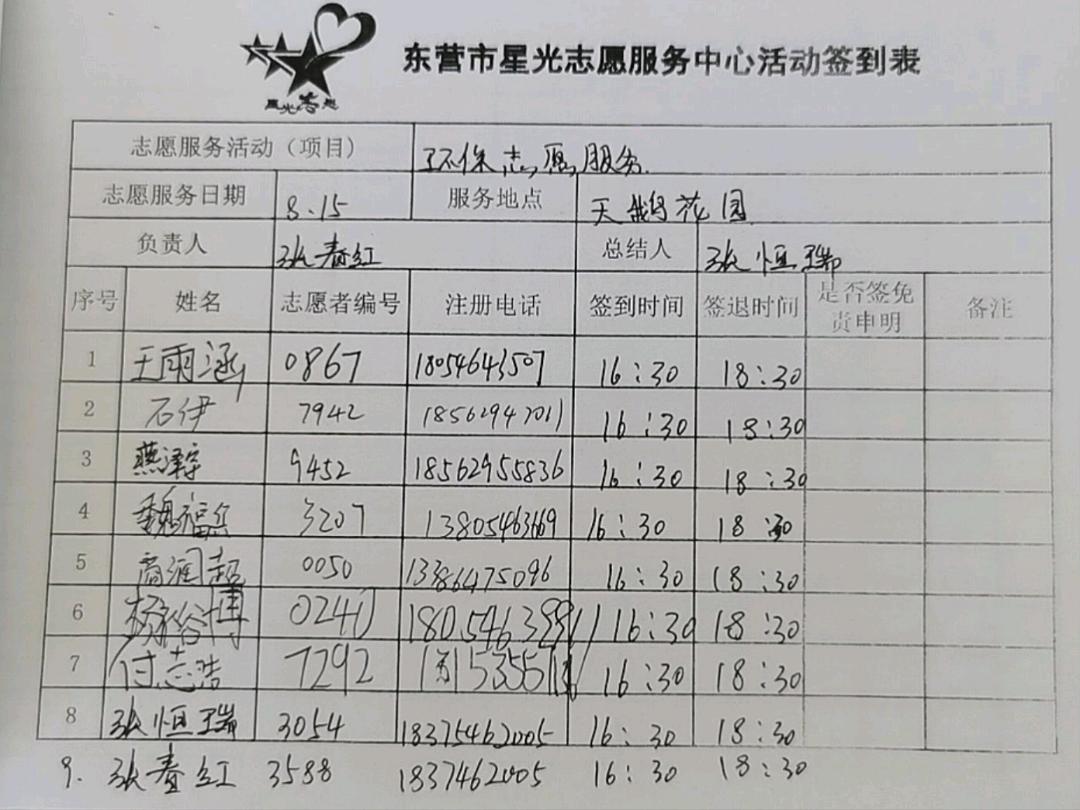 星光志愿
东营市星光志愿服务中心活动签到表
志愿服务活动（项目） 环保志愿服务.
志愿服务日期 8.15 服务地点 天鹅花园
负责人 张春红 总结人 张恒瑞
序号 姓名 志愿者编号 注册电话 签到时间 签退时间 是否签免责申明 备注
1 王雨涵 0867 18054643507 16:30 18:30
2 石伊 7942 18562947011 16:30 18:30
3 燕泽 9452 18562955836 16:30 18:30
4 魏福 3207 13805463669 16:30 18:30
5 商润超 0050 13386475096 16:30 18:30
6 杨裕博 0240 16:30 18:30
7 付志浩 7292 16:30 18:30
8 张恒瑞 3054 18375462005 16:30 18:30
9. 张春红 3588 1837462005 16:30 18:30